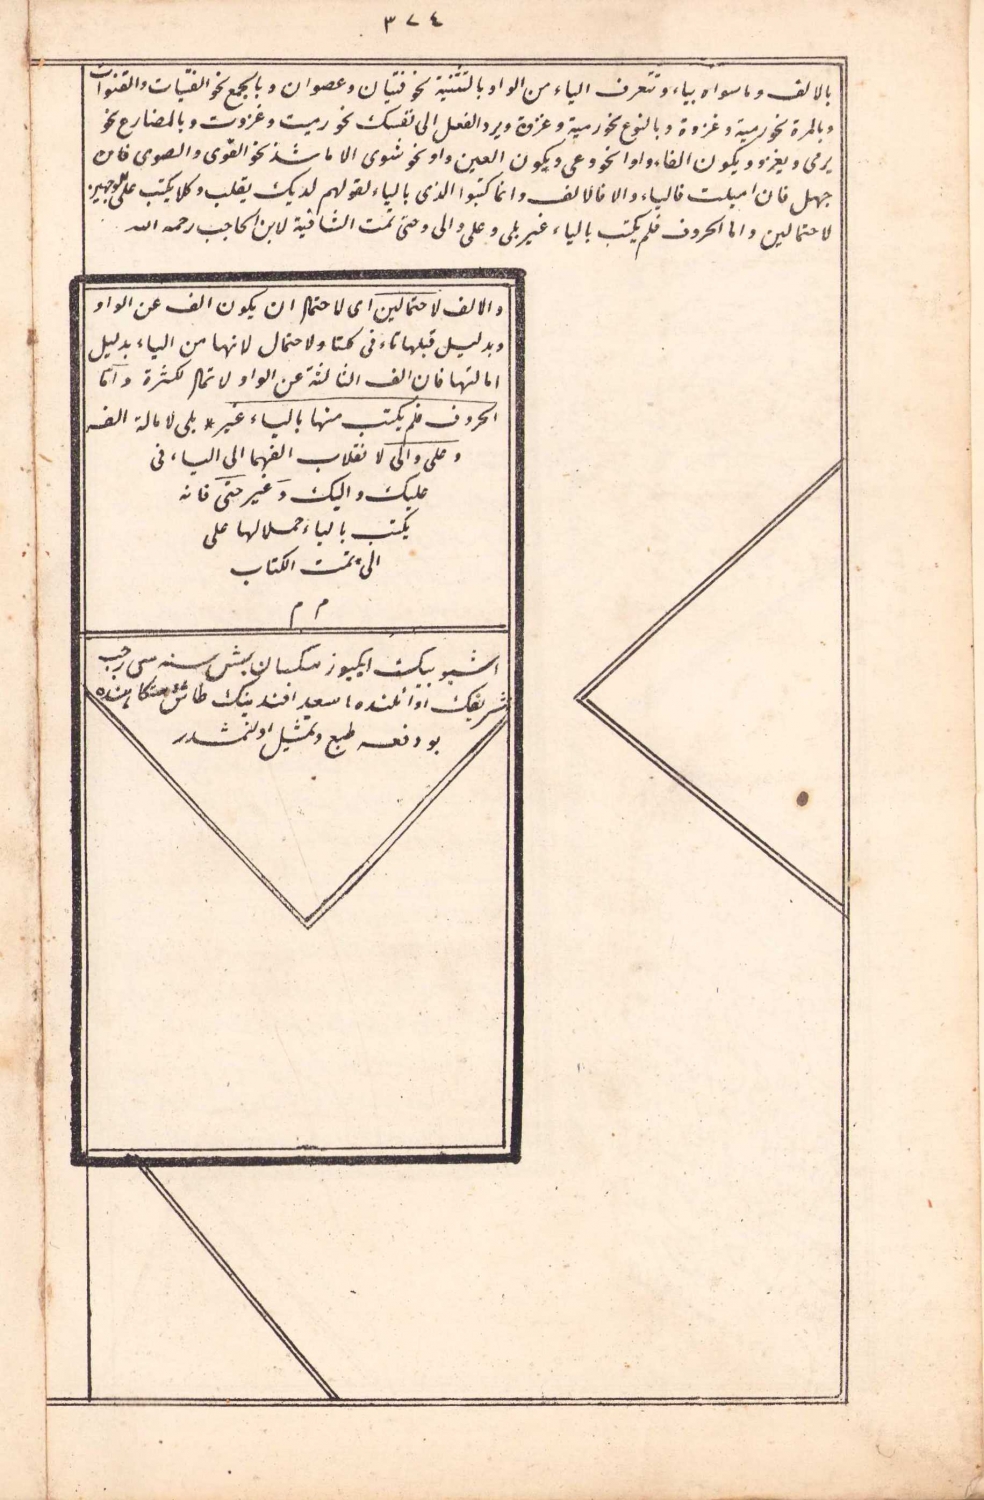 ٣٧٤
بالالف وما سواه بياء وتتعرف الياء من الواو بالتثنية نحو فتيان وعصوان وبالجمع نحو الفتيات والقنوات
وبالمرة نحو رمية وغزوة وبالنوع نحو رمية وغزوة ويرد الفعل الى نفسك نحو رميت وغزوت وبالمضارع نحو
يرمى ويغزو ويكون الفاء واوا نحو وعى ويكون العين واو نحو شوى الا ما شذ نحو القوى والصوى فان
جهل فان اميلت فالياء والا فالالف وانما كتبوا الذى بالياء لقولهم لديك يقلب وكلا يكتب على الوجهين
لاحتمالين واما الحروف فلم يكتب بالياء غير بلى وعلى والى وحتى تمت الشافية لابن الحاجب رحمه الله
والالف لاحتمالين اى لاحتمال ان يكون الف عن الواو
وبدليل قبلها تاء فى كلتا ولاحتمال لانها من الياء بدليل
امالتها فان الف الثالثة عن الواو لا تمال لكثرة واما
الحروف فلم يكتب منها بالياء غير * بلى لامالة الفه
وعلى والى لانقلاب الفهما الى الياء فى
عليك واليك وغير حتى فانه
يكتب بالياء حملا لها على
الى تمت الكتاب
م م
اشبو بيك ايكيوز سكسان بش سنه سى رجب
شريفك اوائلنده اسعد افندينك طاش دستكاهنده
بو دفعه طبع وتمثيل اولنمشدر